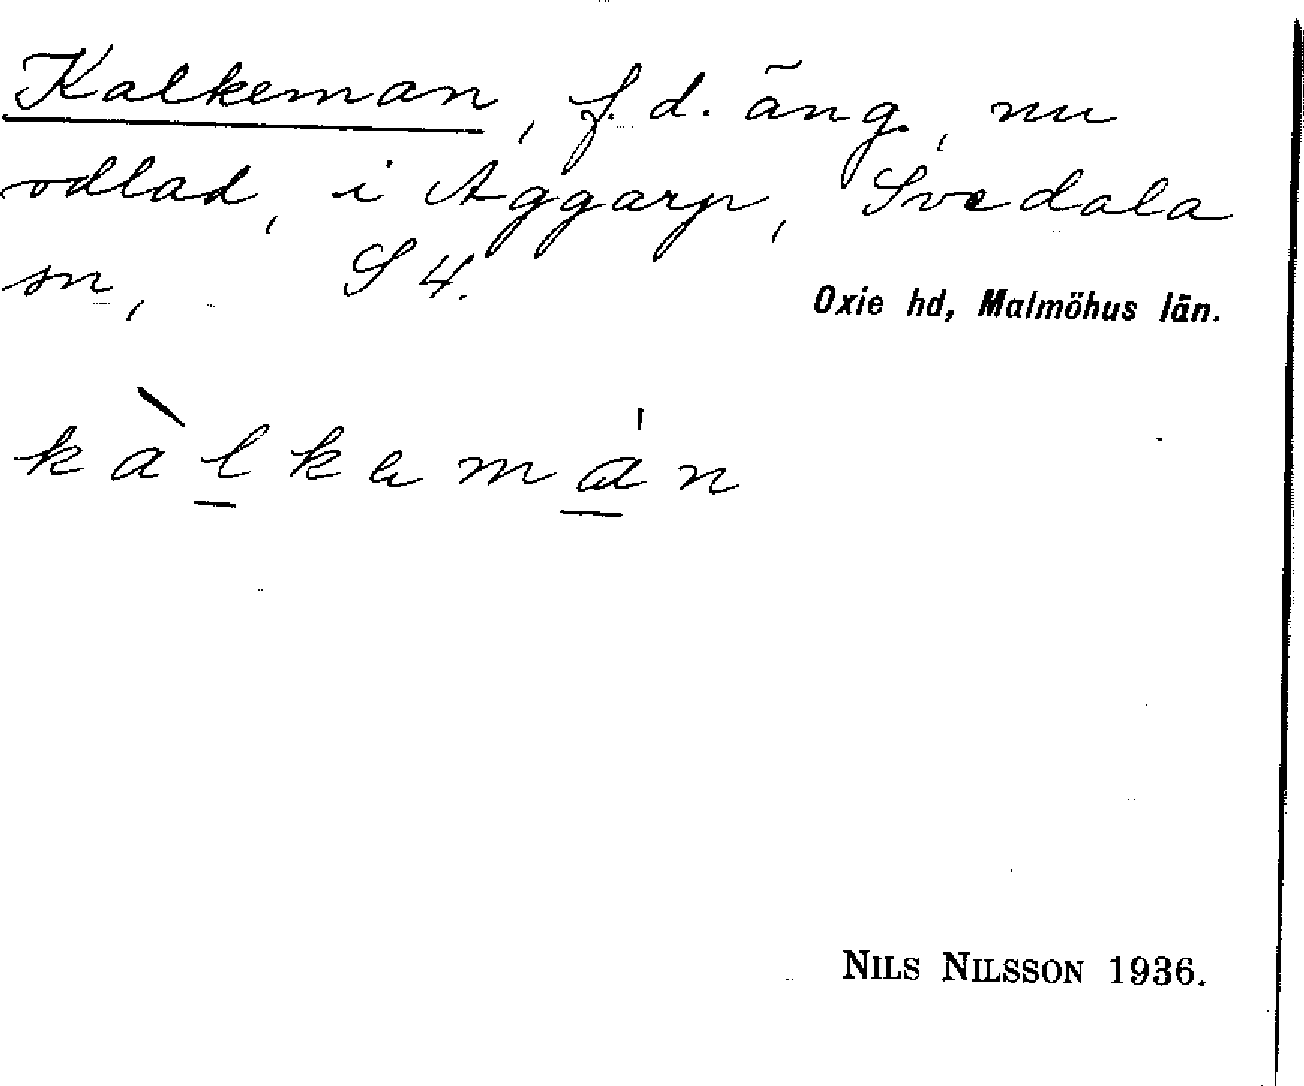 Kalkeman, f.d. äng, nu
odlad, i Aggarp, Svedala
sn, S 4.
Oxie hd, Malmöhus län.
kàlkemán
NILS NILSSON 1936.